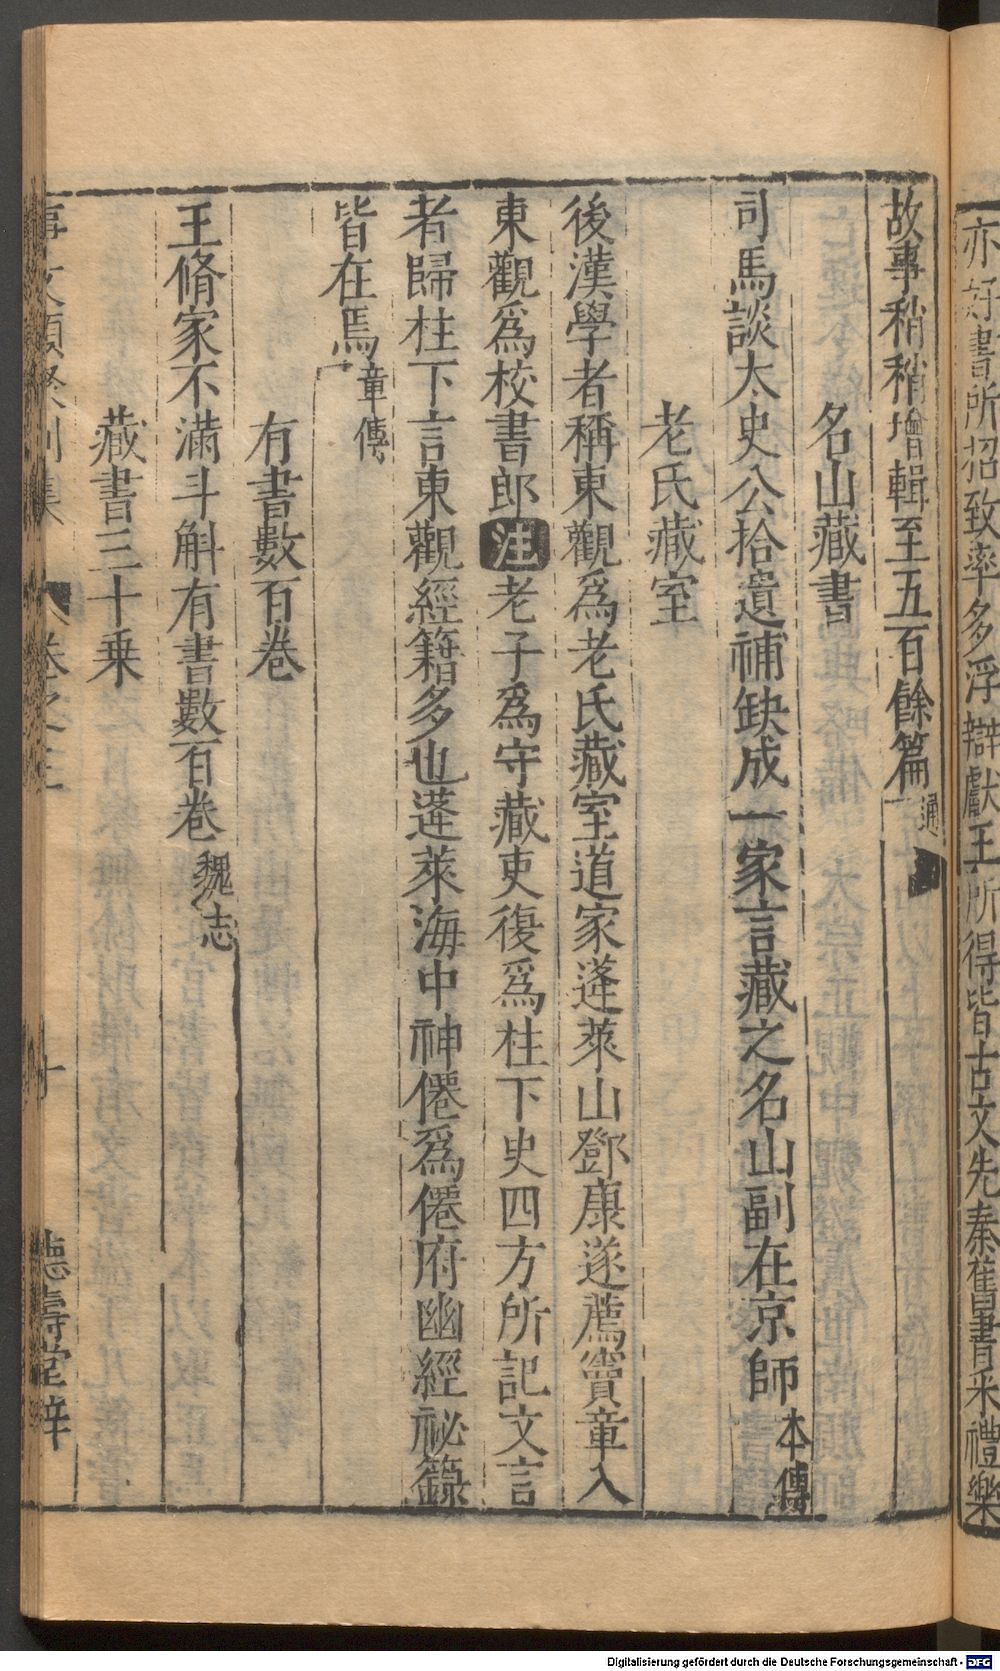 亦好書所招致率多浮辯獻王所得皆古文先秦舊書采禮樂
故事稍稍增輯至五百餘篇通
名山藏書
司馬談太史公拾遺補缺成一家言藏之名山副在京師本傳
老氏藏室
後漢學者稱東觀爲老氏藏室道家蓬萊山鄧康遂薦竇章入
東觀爲校書郎注老子爲守藏吏復爲柱下史四方所記文言
者歸柱下言東觀經籍多也蓬萊海中神僊爲僊府幽經祕籙
皆在焉章傳
有書數百卷
王脩家不滿斗斛有書數百卷魏志
藏書三十乘
事文類聚別集 卷之三 十 德壽堂梓
Digitalisierung gefördert durch die Deutsche Forschungsgemeinschaft - DFG